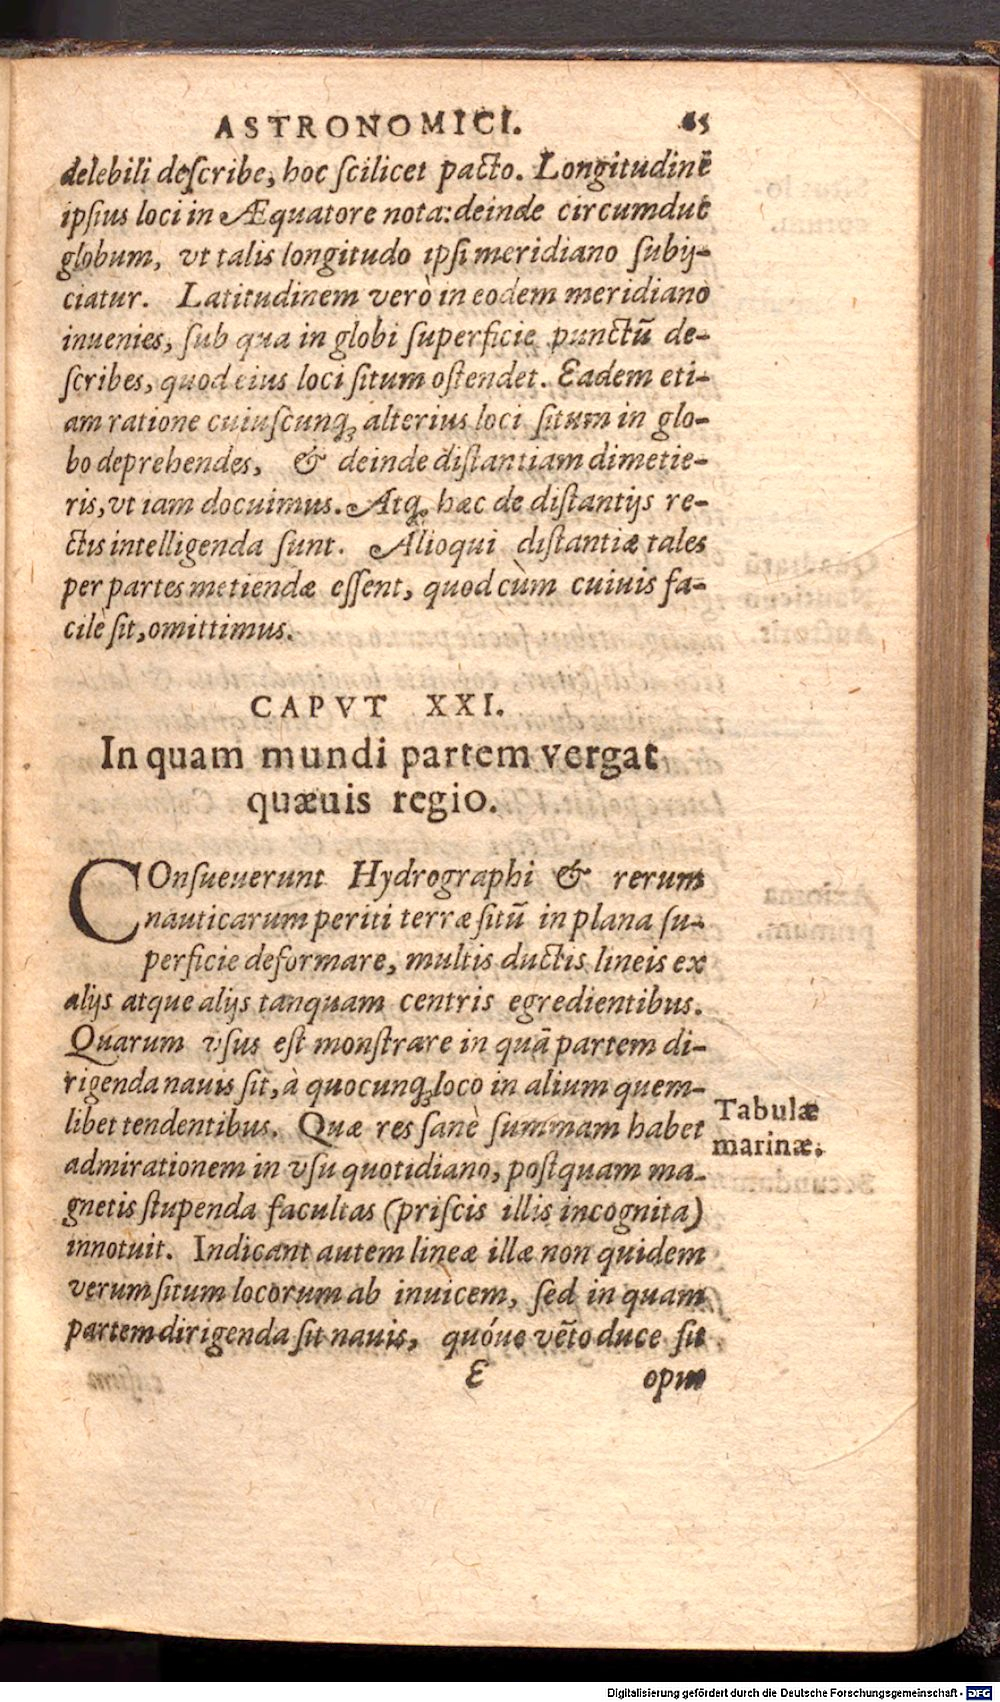 ASTRONOMICI. 65
delebili describe, hoc scilicet pacto. Longitudinẽ
ipsius loci in Æquatore nota: deinde circumduc
globum, vt talis longitudo ipsi meridiano subij-
ciatur. Latitudinem verò in eodem meridiano
inuenies, sub qua in globi superficie punctũ de-
scribes, quod eius loci situm ostendet. Eadem eti-
am ratione cuiuscunq; alterius loci situm in glo-
bo deprehendes, & deinde distantiam dimetie-
ris, vt iam docuimus. Atq; hæc de distantijs re-
ctis intelligenda sunt. Alioqui distantiæ tales
per partes metiendæ essent, quod cùm cuiuis fa-
cilè sit, omittimus.
CAPVT XXI.
In quam mundi partem vergat
quæuis regio.
COnsueuerunt Hydrographi & rerum
nauticarum periti terræ sitũ in plana su-
perficie deformare, multis ductis lineis ex
alijs atque alijs tanquam centris egredientibus.
Quarum vsus est monstrare in quã partem di-
rigenda nauis sit, à quocunq; loco in alium quem-
libet tendentibus. Quæ res sanè summam habet
Tabulæ
marinæ.
admirationem in vsu quotidiano, postquam ma-
gnetis stupenda facultas (priscis illis incognita)
innotuit. Indicant autem lineæ illæ non quidem
verum situm locorum ab inuicem, sed in quam
partem dirigenda sit nauis, quóue vẽto duce sit
E opus
Digitalisierung gefördert durch die Deutsche Forschungsgemeinschaft - DFG